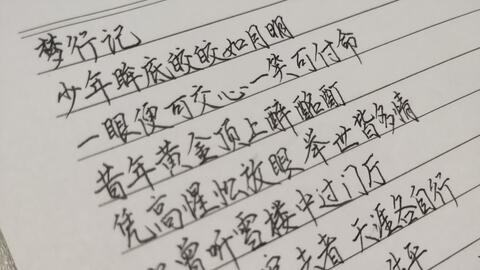 梦行记
少年眸底皎皎如月明
一眼便可交心一笑可付命
昔年黄金顶上醉酩酊
凭高望忪放眼举世皆多情
曾听雪楼中过门厅
者 天涯各自行
平